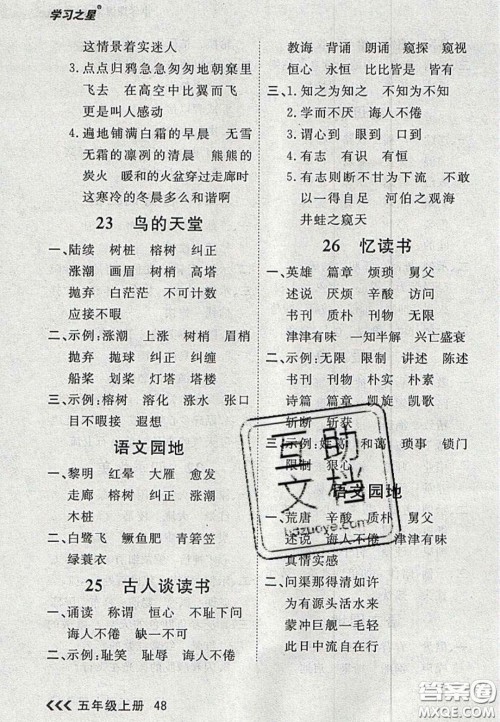 学习之星®
这情景着实迷人
3. 点点归鸦急急匆匆地朝窠里
飞去 在高空中比翼而飞
更是叫人感动
4. 遍地铺满白霜的早晨 无雪
无霜的凛冽的清晨 熊熊的
炭火 暖和的火盆穿过走廊时
这寒冷的冬晨多么和谐啊
23 鸟的天堂
一、陆续 树桩 榕树 纠正
涨潮 画眉 树梢 高塔
抛弃 白茫茫 不可计数
应接不暇
二、示例:涨潮 上涨 树梢 眉梢
抛弃 抛球 纠正 纠缠
船桨 划桨 灯塔 塔楼
三、示例:榕树 溶化 涨水 张口
目不暇接 遐想
语文园地
一、黎明 红晕 大雁 愈发
走廊 榕树 纠正 涨潮
木桩
二、白鹭飞 鳜鱼肥 青箬笠
绿蓑衣
25 古人谈读书
一、诵读 称谓 恒心 不耻下问
诲人不倦 缺一不可
二、示例:耻笑 耻辱 诲人不倦
教诲 背诵 朗诵 窥探 窥视
恒心 永恒 比比皆是 皆有
三、1. 知之为知之 不知为不知
2. 学而不厌 诲人不倦
3. 谓心到 眼到 口到
4. 有志 有识 有恒
5. 有志则断不甘为下流 不敢
以一得自足 河伯之观海
井蛙之窥天
26 忆读书
一、英雄 篇章 烦琐 舅父
述说 厌烦 辛酸 访问
书刊 质朴 刊物 无限
津津有味 一知半解 兴亡盛衰
二、示例:无限 限制 讲述 陈述
书刊 刊物 朴实 朴素
诗篇 篇章 凯旋 凯歌
斩断 斩获
三、示例: 和蔼 琐事 锁门
限制 狠心
语文园地
一、荒唐 辛酸 质朴 舅父
述说 诲人不倦 津津有味
真情实感
二、问渠那得清如许
为有源头活水来
蒙冲巨舰一毛轻
此日中流自在行
互助文档
hdzuoye.com
五年级上册 48
答案圈
MXQE.COM